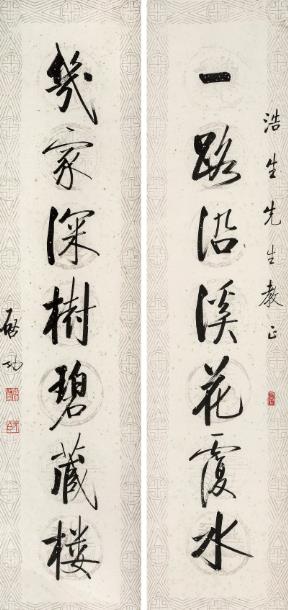 浩生先生教正
一路沿溪花覆水
幾家深樹碧藏楼
啟功